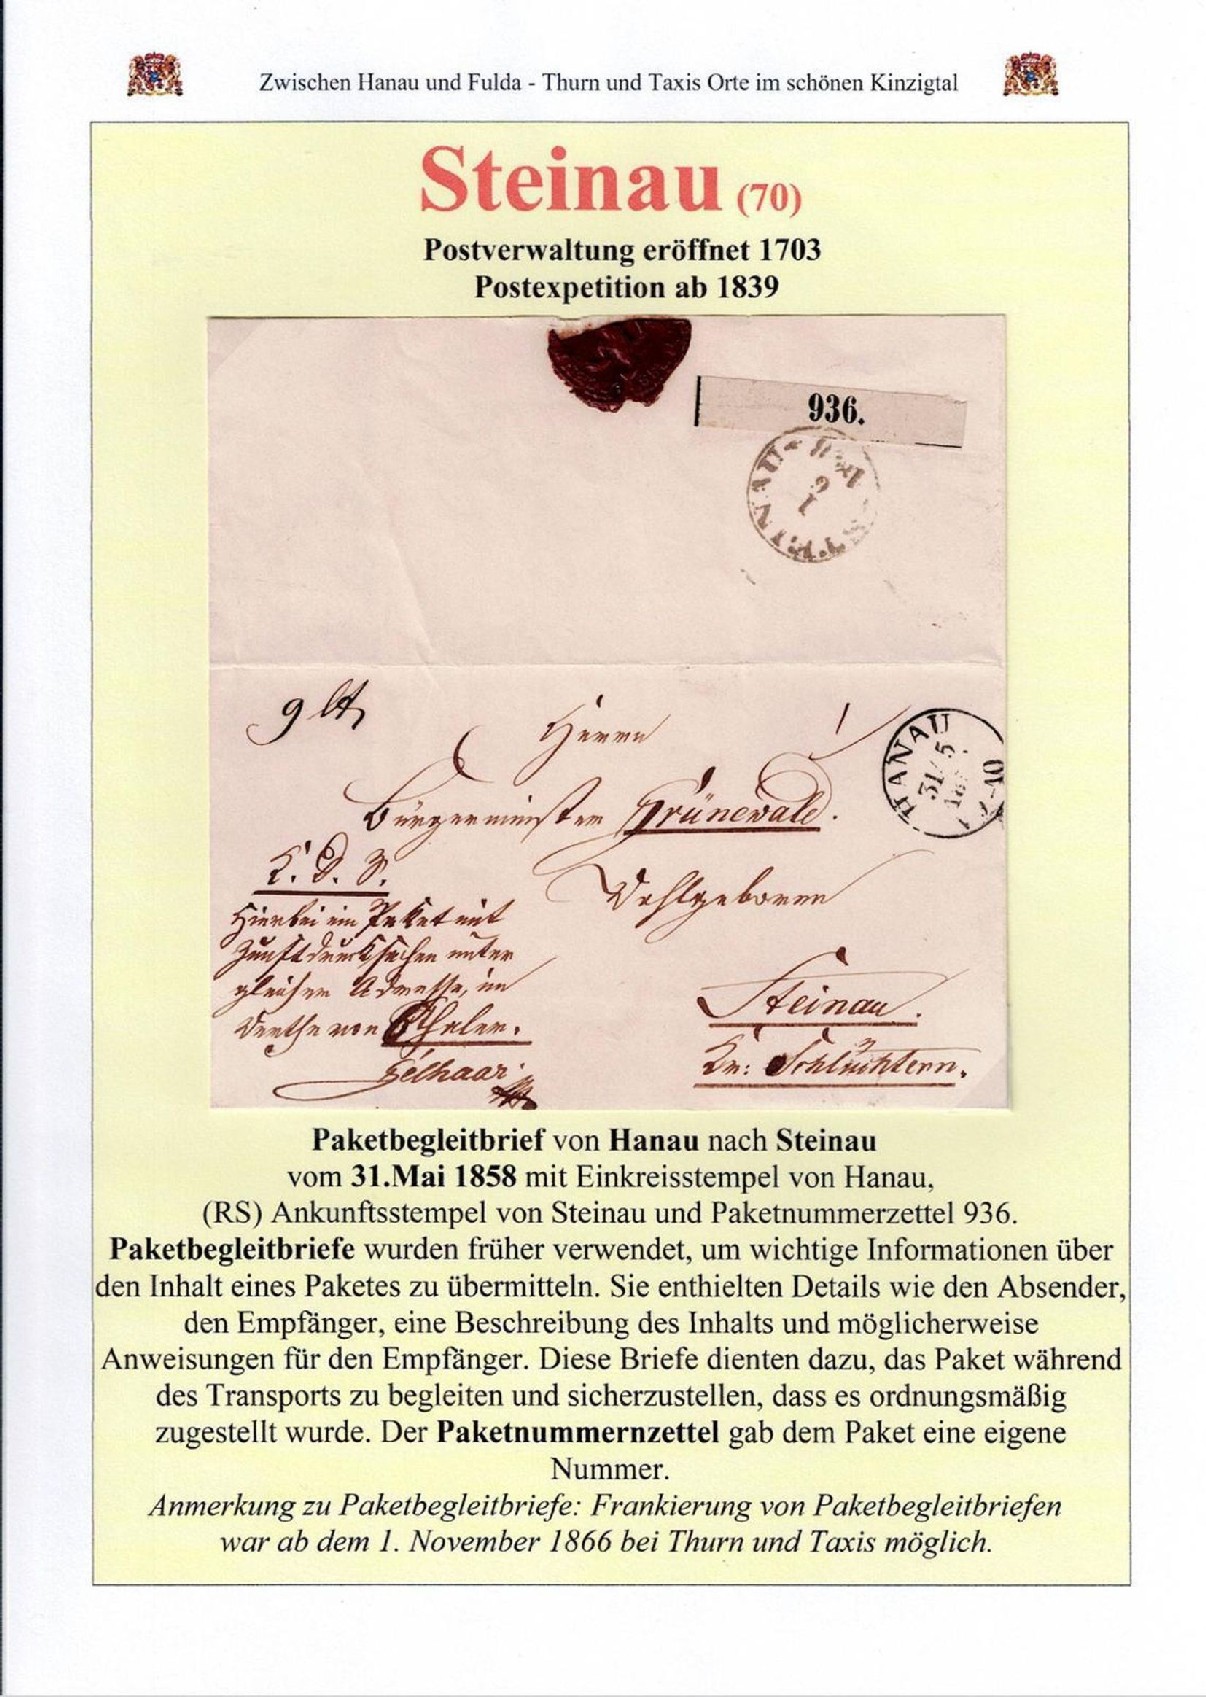 Zwischen Hanau und Fulda - Thurn und Taxis Orte im schönen Kinzigtal
Steinau (70)
Postverwaltung eröffnet 1703
Postexpetition ab 1839
936.
STEINAU
1
6
Herrn
Bürgermeister Grünewald.
Wohlgeboren
HANAU
31 5
Hierbei ein Paket mit
Zunftdrucksachen unter
gleicher Adresse, im
Werthe von 6 Thaler.
Gelhaar
Steinau.
Kr: Schlüchtern.
Paketbegleitbrief von Hanau nach Steinau
vom 31.Mai 1858 mit Einkreisstempel von Hanau,
(RS) Ankunftsstempel von Steinau und Paketnummerzettel 936.
Paketbegleitbriefe wurden früher verwendet, um wichtige Informationen über
den Inhalt eines Paketes zu übermitteln. Sie enthielten Details wie den Absender,
den Empfänger, eine Beschreibung des Inhalts und möglicherweise
Anweisungen für den Empfänger. Diese Briefe dienten dazu, das Paket während
des Transports zu begleiten und sicherzustellen, dass es ordnungsmäßig
zugestellt wurde. Der Paketnummernzettel gab dem Paket eine eigene
Nummer.
Anmerkung zu Paketbegleitbriefe: Frankierung von Paketbegleitbriefen
war ab dem 1. November 1866 bei Thurn und Taxis möglich.